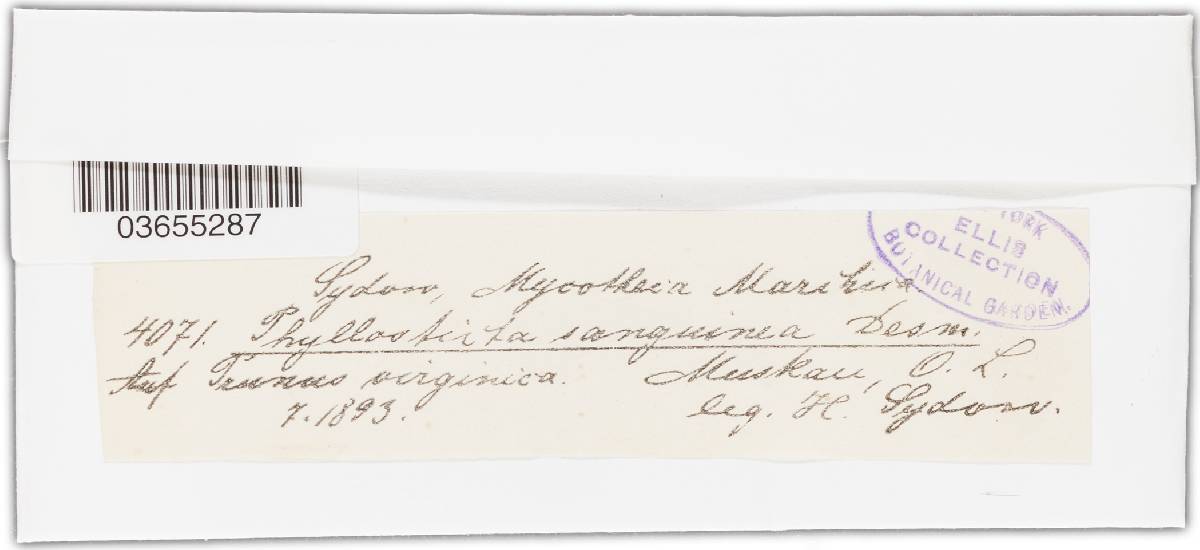 03655287
YORK
ELLIS
COLLECTION
BOTANICAL GARDEN.
Sydow, Mycotheca Marchica
4071. Phyllosticta sanguinea Desm.
Auf Prunus virginica. Muskau, O. L.
7. 1893. leg. H. Sydow.